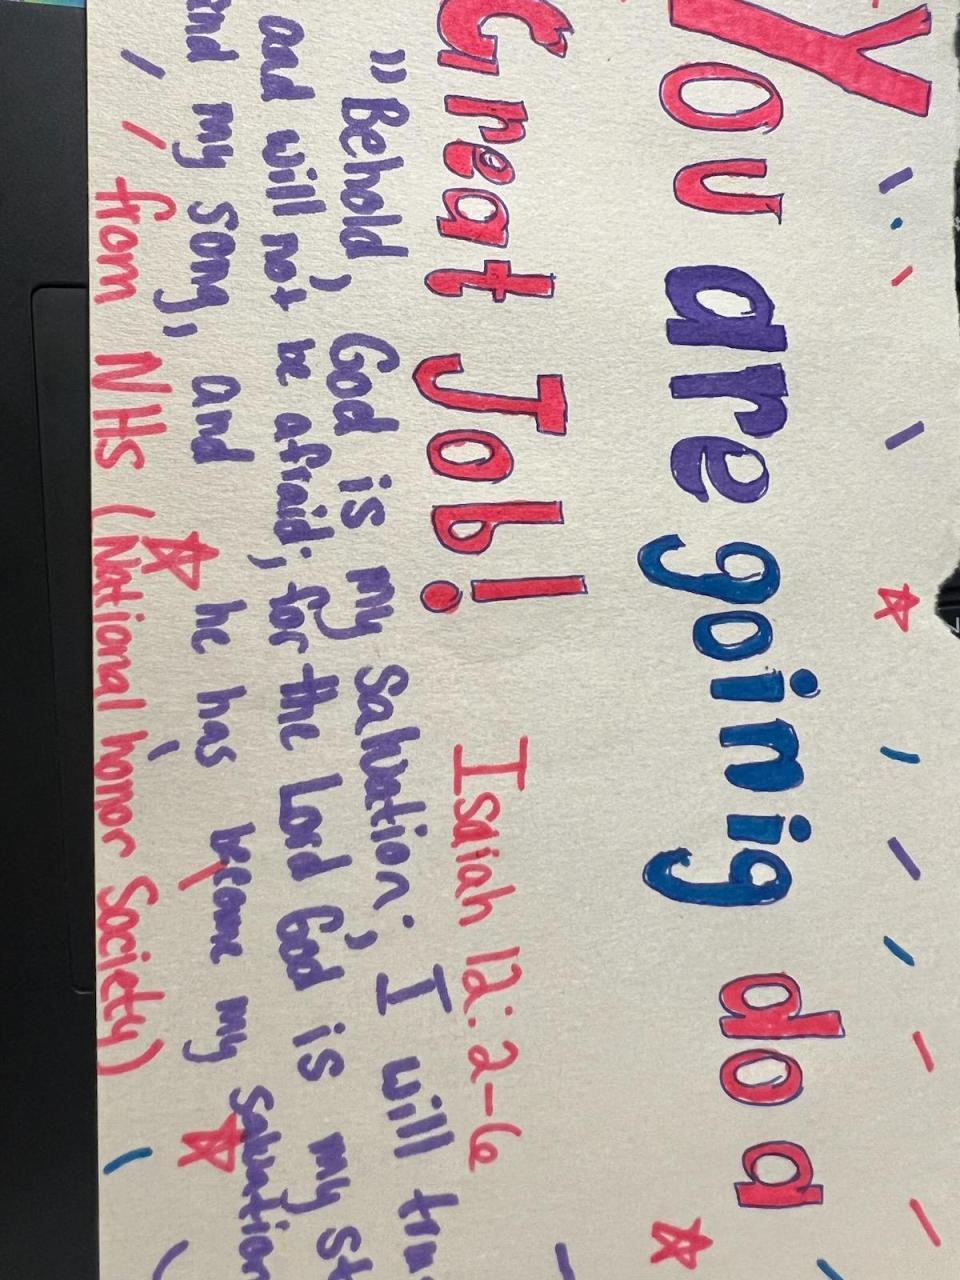 You are going do a
Great Job!
Isaiah 12:2-6
"Behold, God is my salvation; I will
and will not be afraid; for the Lord God is my
and my song, and he has become my salvation
from NHS (National honor Society)